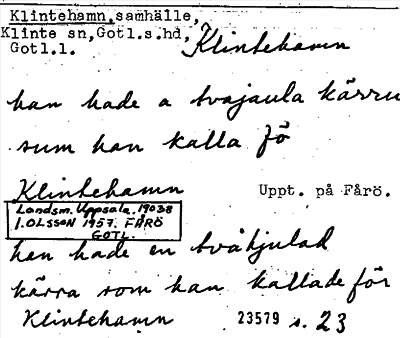 Klintehamn, samhälle,
Klinte sn, Gotl.s.hd,
Gotl.l.
Klintehamn
han hade a tvajaula kärru
sum han kalla fö
Klintehamn
Uppt. på Fårö.
Landsm. Uppsala. 19038
I. OLSSON 1957. FÅRÖ
GOTL.
han hade en tvåhjulad
kärra som han kallade för
Klintehamn
23579 s. 23